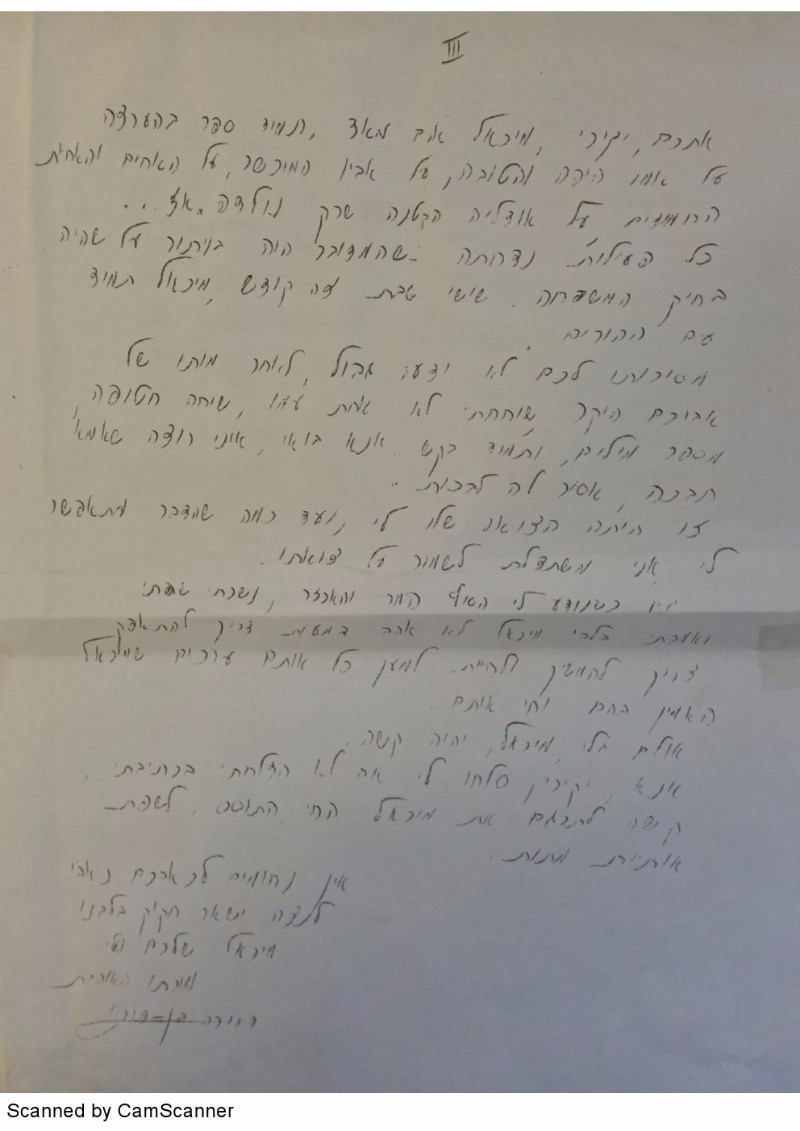 III
אתכם, יקירי, מיכאל אהב מאד, תמיד ספר בהערצה
על אמו היפה והטובה, על אביו המוכשר, על האחים והאחיות
החמודים על אודליה הקטנה שרק נולדה אז...
כל פעילות נדחתה שהמדובר היה בויתור על שהיה
בחיק המשפחה. שישי שבת זה קודש, מיכאל תמיד
עם ההורים.
מסירותו לכם לא ידעה גבול, לאחר מותו של
אבוכם היקר שוחחתי לא אחת עמו, שיחה חטופה,
מספר מילים, ותמיד בקש אנא בואי, אינני רוצה שאמא
תבכה, אסור לה לבכות..
זו היתה הצוואה שלו לי, ועד כמה שהדבר מתאפשר
לי אני משתדלת לשמור על צוואתו.
גם כשנודע לי הסוף המר והאכזר, נשכתי שפתי
ואמרתי בלבי מיכאל לא אהב דמעות צריך להתאפק
צריך להמשיך ולחיות. למען כל אותם ערכים שמיכאל
האמין בהם וחי אותם.
אולם בלי מיכאל, יהיה קשה.
אנא, יקירי סלחו לי אם לא הצלחתי בכתיבתי,
קשה לתרגם את מיכאל החי התוסס, לשפת
אותיות מתות.
אין נחומים לכאבכם
לנצח ישאר חקוק בלבנו
מיכאל שלכם ושלי
מורתו האוהבת